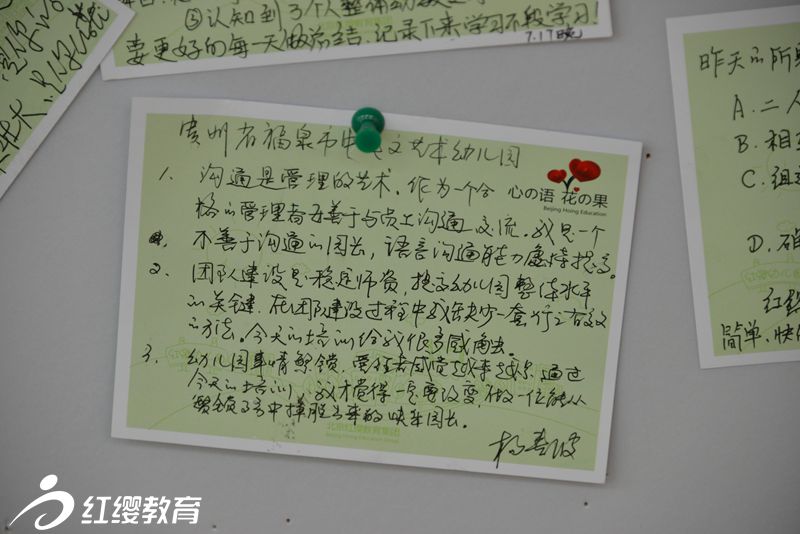 ③认知到3个人整体
要更好的每一天做总结、记录下来学习不段学习!
7.17晚
昨天的所
A.二人
B.相互
C.组
D.确
红缨
简单、快
贵州省福泉市 艺术幼儿园
心の语 花の果
Beijing Hoing Education
1、沟通是管理的艺术。作为一个合
格的管理者要善于与员工沟通、交流。我是一个
不善于沟通的园长,语言沟通能力虚待提高。
2、团队建设是稳定师资,提高幼儿园整体水平
的关键。在团队建设过程中我缺少一套行之有效
的方法。今天的培训给我很多感触。
3、幼儿园事情繁锁,管理者感觉越来越累,通过
今天的培训,我才觉得需要改变,做一位能从
繁锁事务中挣脱出来的快乐园长。
杨春波
北京红缨教育集团
Beijing Hoing Education Group
红缨教育